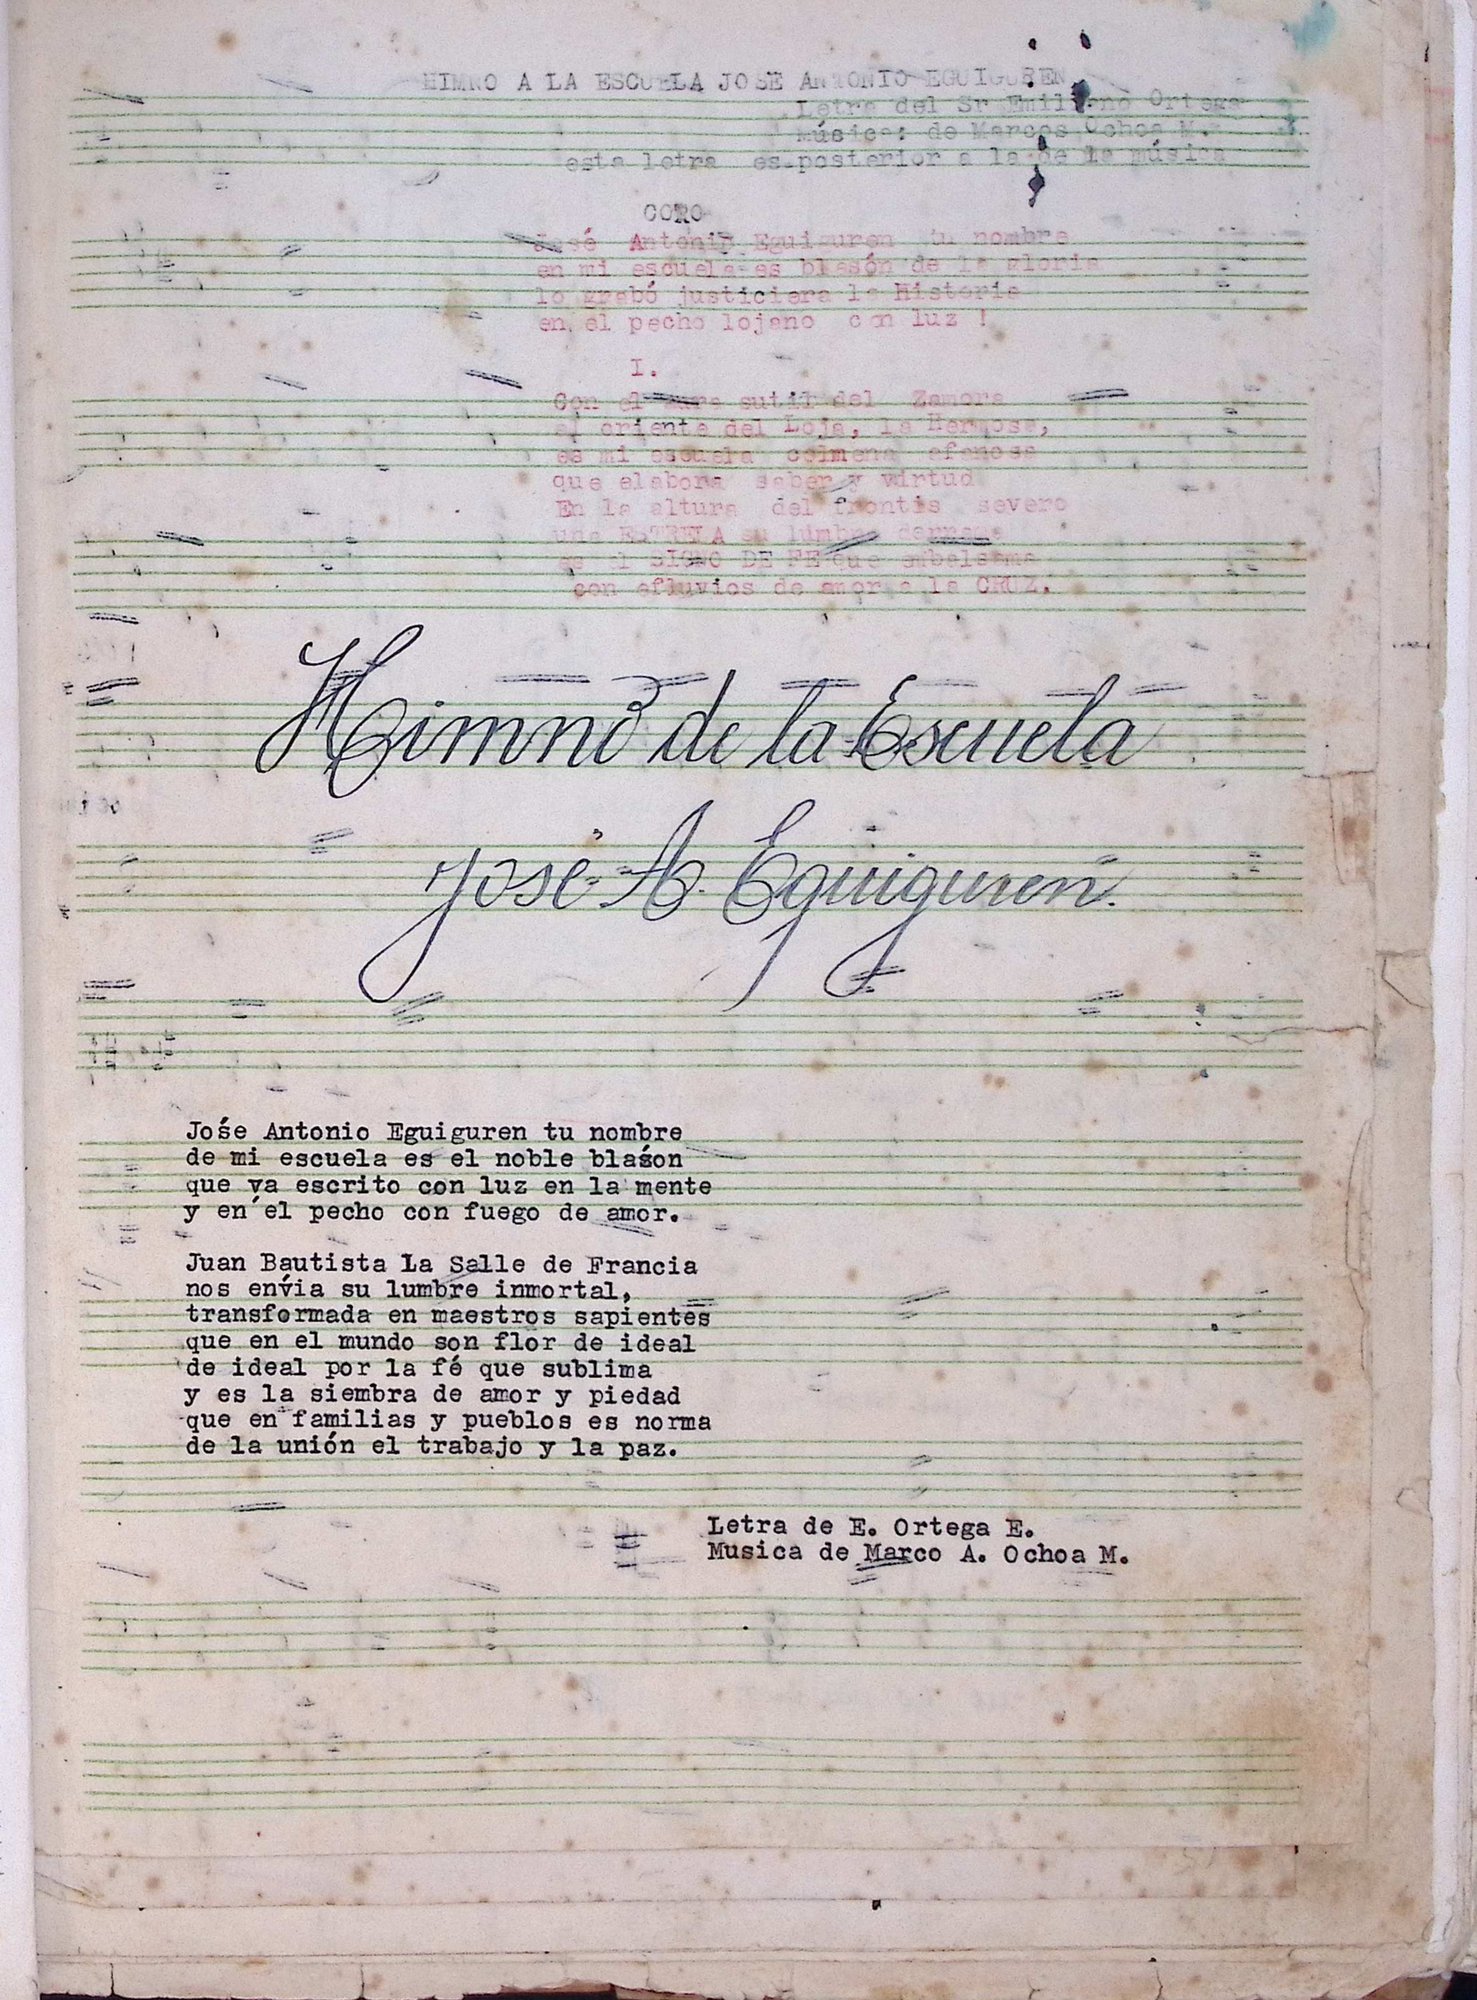 HIMNO A LA ESCUELA JOSE ANTONIO EGUIGUREN
Letra del Sr Emiliano Ortega
Música: de Marcos Ochoa M.
esta letra es posterior a la de la música
CORO
José Antonio Eguiguren tu nombre
en mi escuela es blasón de la gloria
lo grabó justiciera la Historia
en el pecho lojano con luz !
I.
Con el sutil del Zamora
al oriente del Loja, la Hermosa,
es mi escuela colmena afanosa
que elabora saber y virtud
En la altura del frontis severo
una ESTRELA su lumbre derrama
es el SIGNO DE FE que embalsama
con efluvios de amor a la CRUZ.
Himno de la Escuela
José A. Eguiguren.
Jośe Antonio Eguiguren tu nombre
de mi escuela es el noble blaśon
que va escrito con luz en la mente
y en el pecho con fuego de amor.
Juan Bautista La Salle de Francia
nos env́ia su lumbre inmortal,
transformada en maestros sapientes
que en el mundo son flor de ideal
de ideal por la fé que sublima
y es la siembra de amor y piedad
que en familias y pueblos es norma
de la unión el trabajo y la paz.
Letra de E. Ortega E.
Musica de Marco A. Ochoa M.